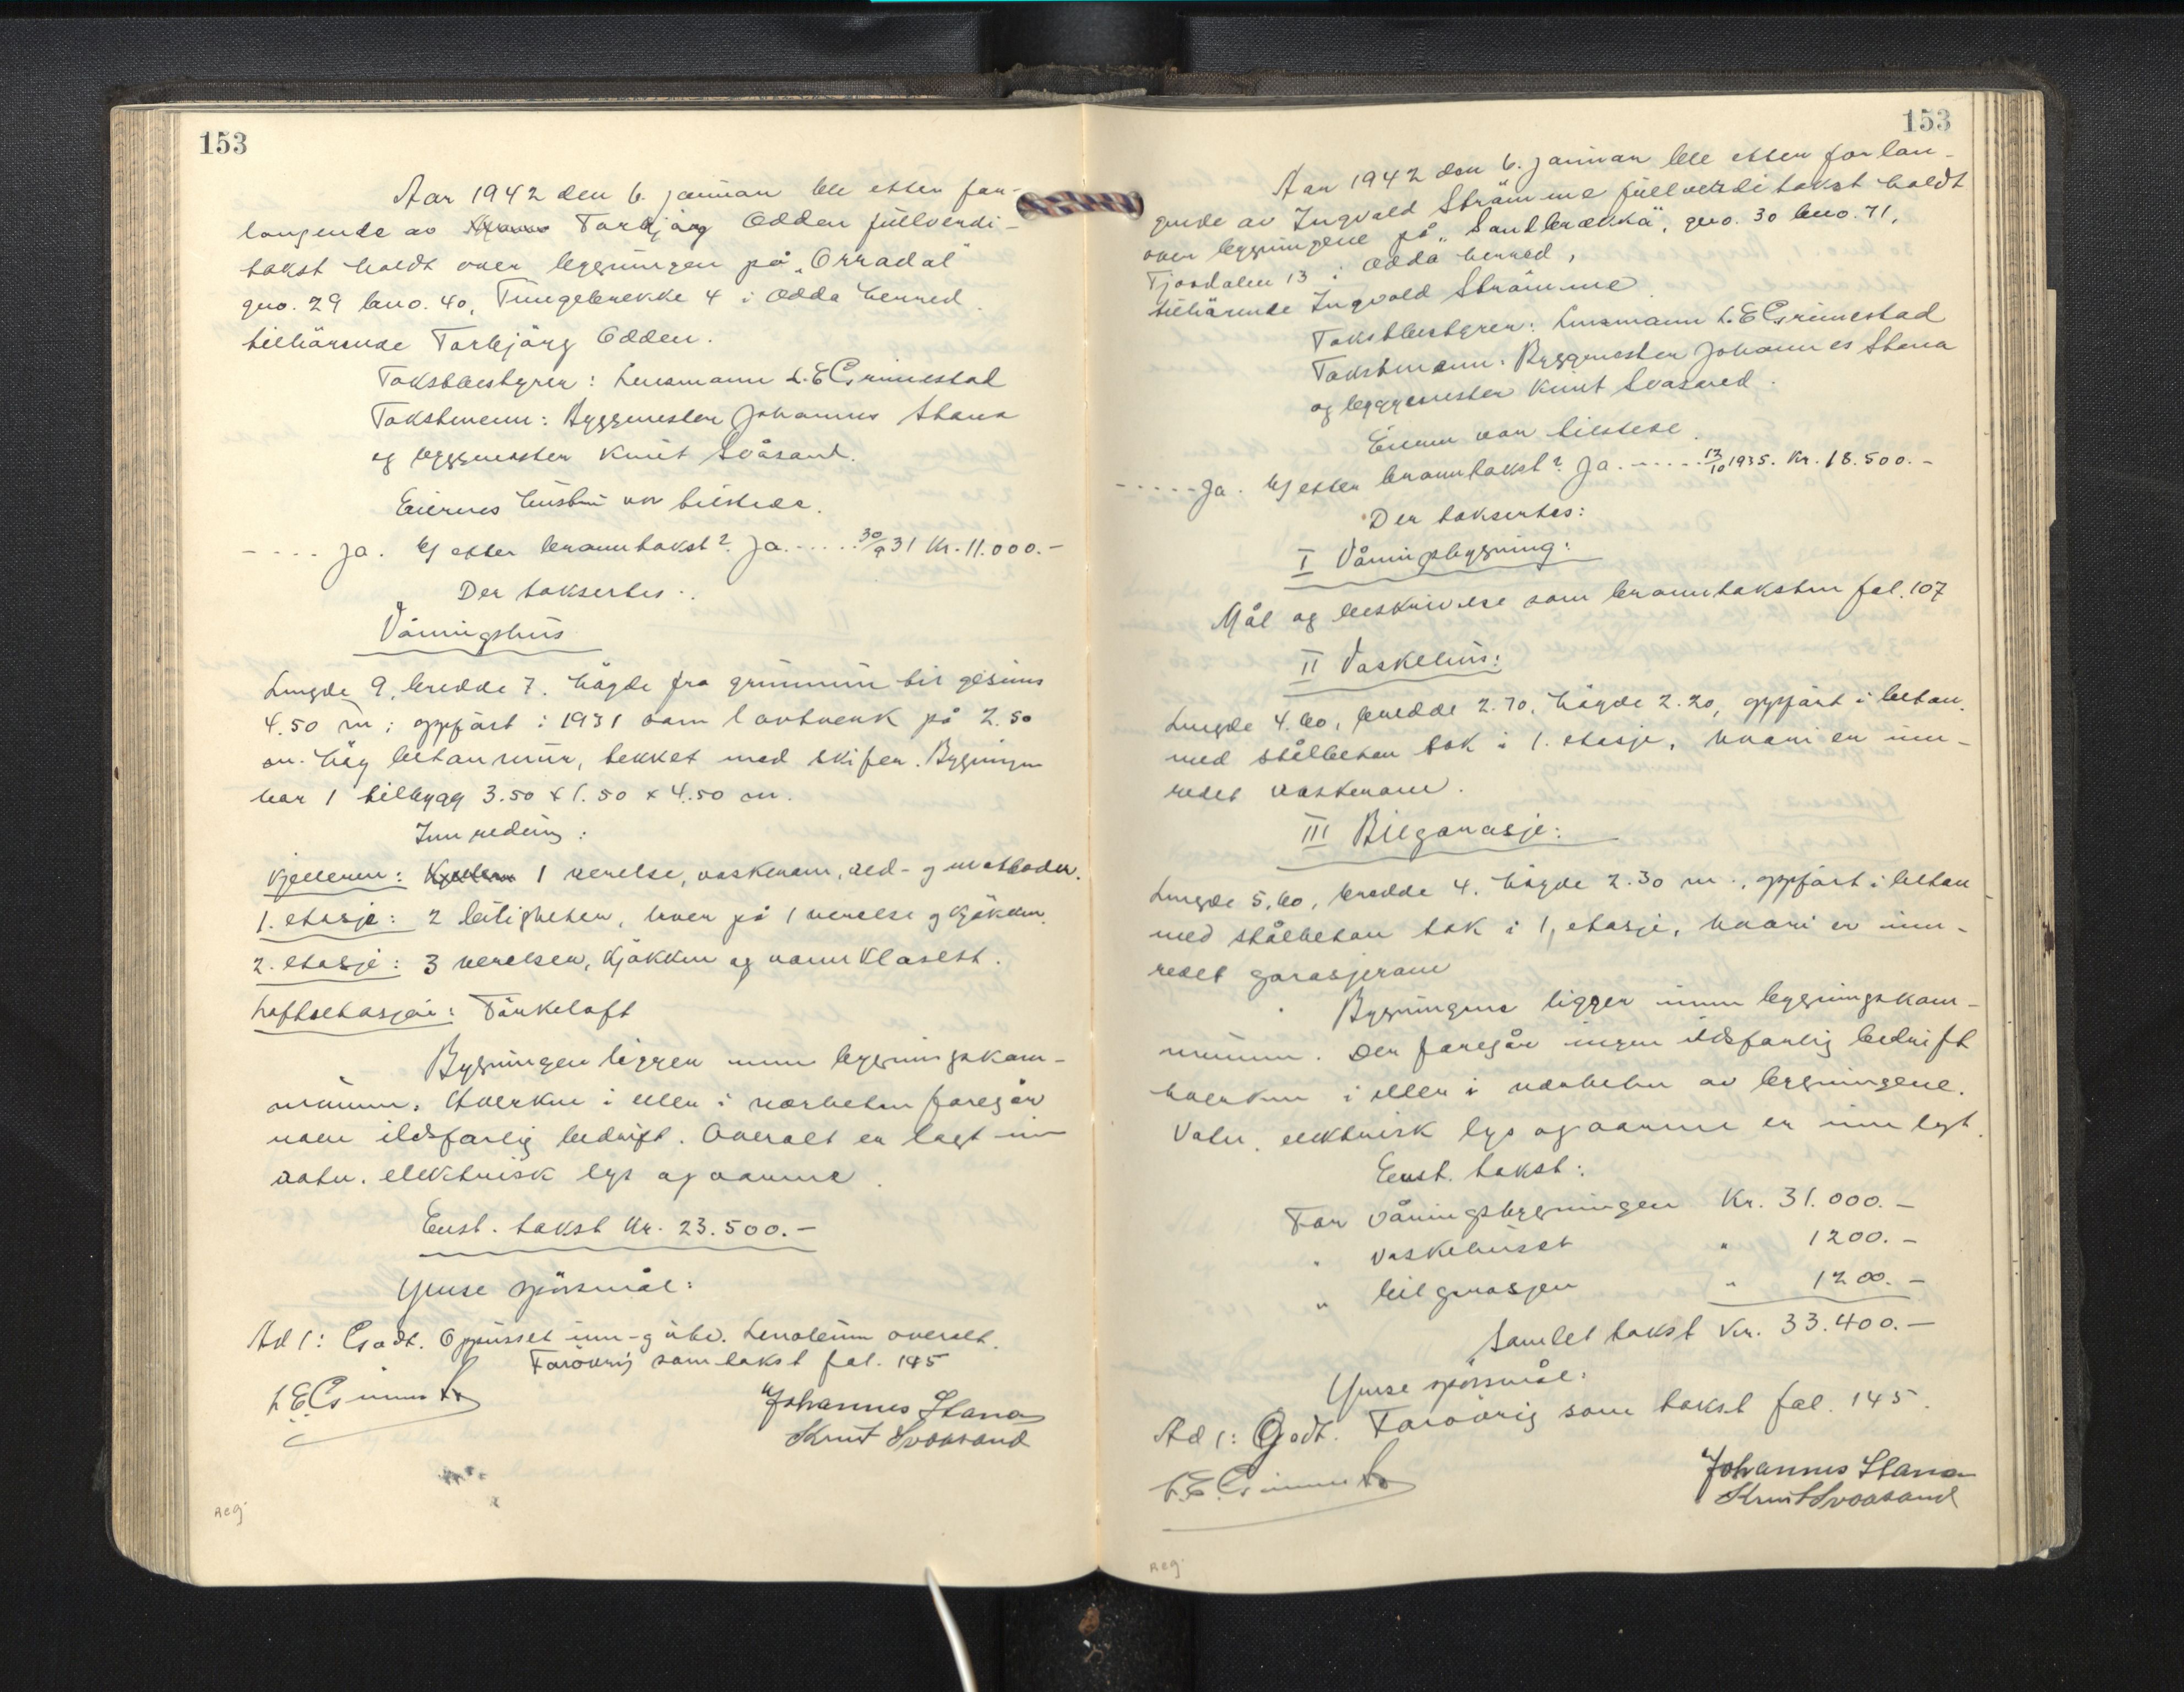 153
Aar 1942 den 6. januar ble etter for-
langende av Torbjørg Odden fullverdi-
takst holdt over bygningen på „Orradal"
gno. 29 bno. 40, Tungebrekke 4 i Odda herred
tilhørende Torbjørg Odden.
Takstbestyrer: Lensmann L. E. Grimestad
Takstmenn: Byggmester Johannes Stana
og byggmester Knut Svåsand.
Eierens hustru var tilstede.
- - - - Ja. Ny etter branntakst? Ja. - - - - - 30/9 31 Kr. 11.000.-
Der taksertes:
Våningshus
Lengde 9, bredde 7. høgde fra grunnmur til gesims
4.50 m; oppført i 1931 som lavtverk på 2.50
m. høg betonmur, tekket med skifer. Bygningen
har 1 tilbygg 3.50 x 1.50 x 4.50 m.
Innredning:
Kjelleren: 1 verelse, vaskerom, ved- og matboder.
1. etasje: 2 leiligheter, hver på 1 verelse og kjøkken.
2. etasje: 3 verelser, kjøkken og vannklosett.
Loftsetasjen: Tørkeloft
Bygningen ligger innen bygningskom-
munen. Hverken i eller i nærheten foregår
noen ildsfarlig bedrift. Overalt er lagt inn
vatn, elektrisk lys og varme.
Enst. takst Kr. 23.500.-
Ymse spørsmål:
Ad 1: Godt. Oppusset inn- og utv. Linoleum overalt.
Forøvrig som takst fol. 145
L. E. Grimestad
Johannes Stana
Knut Svaasand
Reg.
153
Aar 1942 den 6. januar ble etter forlan-
gende av Ingvald Strømme fullverditakst holdt
over bygningene på „Sandbrækka", gno. 30 bno. 71,
Tjosdalen 13 i Odda herred,
tilhørende Ingvald Strømme
Takstbestyrer: Lensmann L. E. Grimestad
Takstmenn: Byggmester Johannes Stana
og byggmester Knut Svasand.
Eieren var tilstede.
- - - - - Ja. Ny etter branntakst? Ja. - - - - - 13/10 1935. Kr. 18.500.-
Der taksertes:
I Våningsbygning:
Mål og beskrivelse som branntaksten fol. 107
II Vaskehus:
Lengde 4.60, bredde 2.70, høgde 2.20, oppført i beton
med stålbeton tak i 1. etasje, hvori er inn-
redet vaskerom.
III Bilgarasje:
Lengde 5.60, bredde 4. høgde 2.30 m., oppført i beton
med stålbeton tak i 1, etasje, hvori er inn-
redet garasjerom
Bygningene ligger innen bygningskom-
munen. Der foregår ingen ildsfarlig bedrift
hverken i eller i nærheten av bygningene.
Vatn, elektrisk lys og varme er inn lagt.
Enst. takst:
For våningsbygningen Kr. 31.000.-
" vaskehuset " 1200.-
" bilgarasjen " 1200.-
Samlet takst Kr. 33.400.-
Ymse spørsmål:
Ad 1: Godt. Forøvrig som takst fol. 145.
L. E. Grimestad
Johannes Stana
Knut Svaasand
Reg.